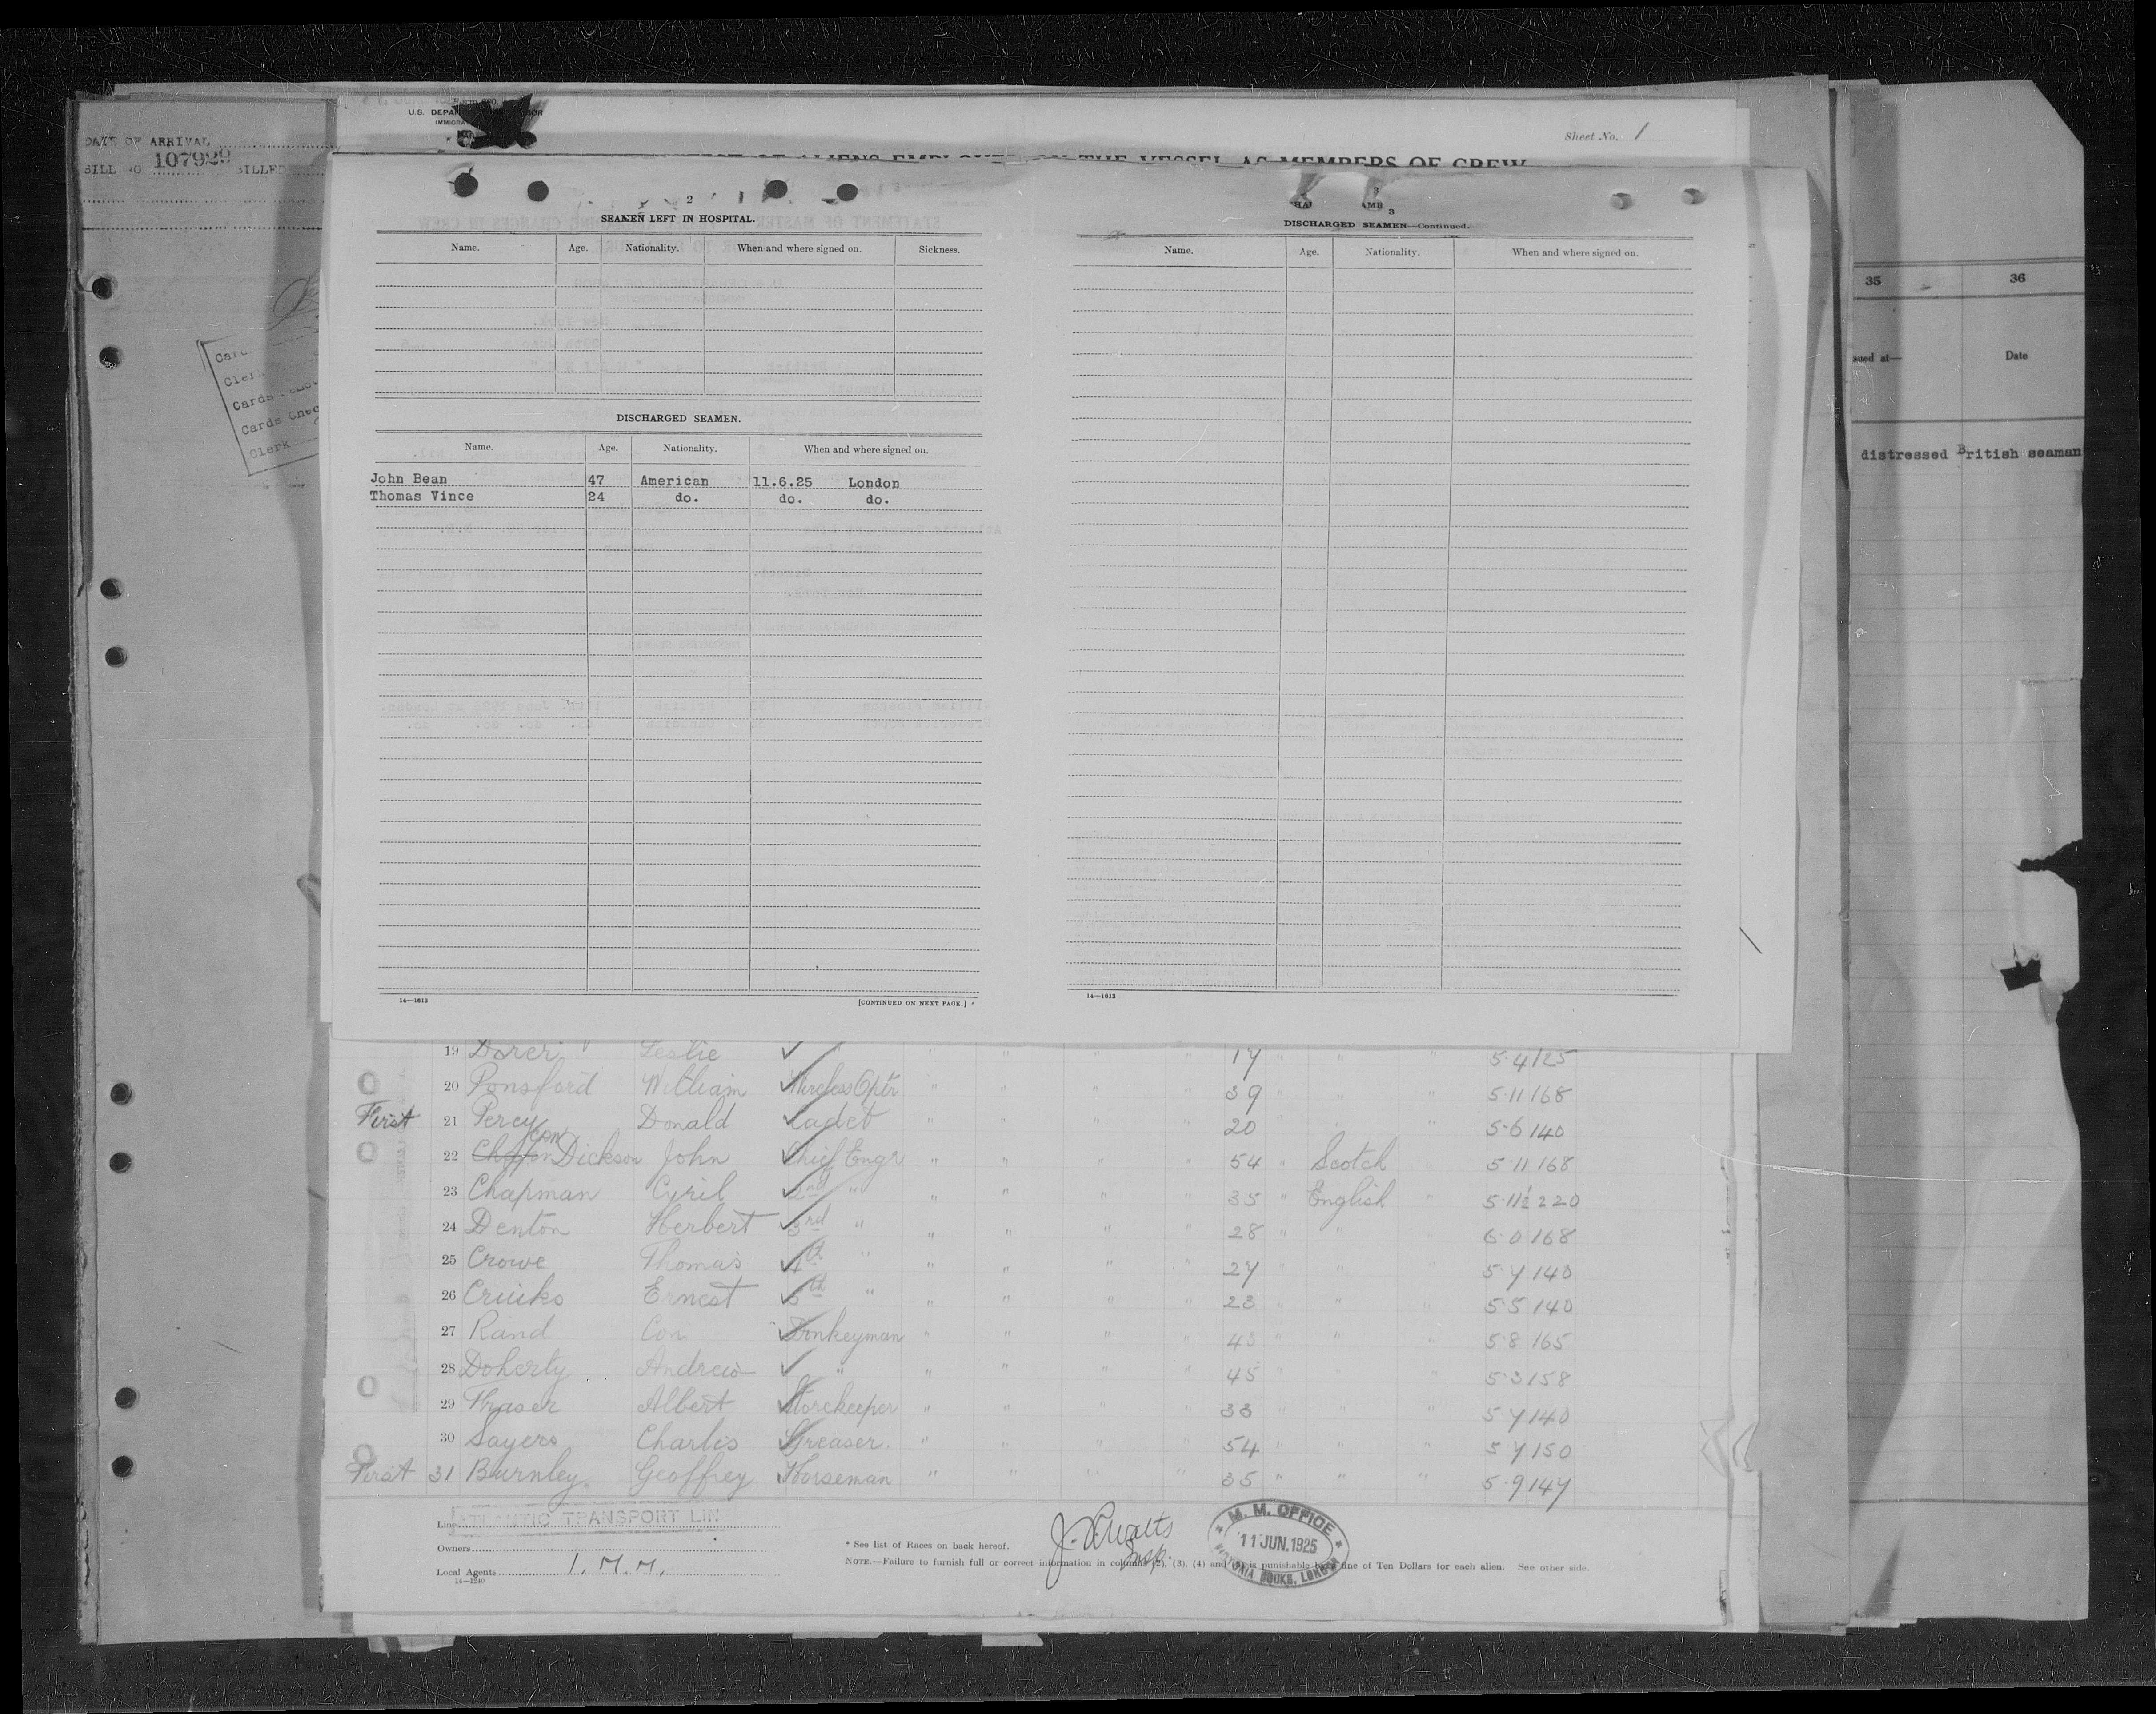 DATE OF ARRIVAL
BILL NO 107929 BILLED
U.S. DEPA
IMMIGRA
Sheet No. 1
OF ALIENS EMPLOYED ON THE VESSEL AS MEMBERS OF CREW
2
SEAMEN LEFT IN HOSPITAL.
Name. Age. Nationality. When and where signed on. Sickness.
DISCHARGED SEAMEN.
Name. Age. Nationality. When and where signed on.
John Bean 47 American 11.6.25 London
Thomas Vince 24 do. do. do.
14—1613 [CONTINUED ON NEXT PAGE.]
3
3
DISCHARGED SEAMEN—Continued.
Name. Age. Nationality. When and where signed on.
14—1613
Clerk
Cards Chec
Clerk
35 36
sued at— Date
distressed British seaman
19 Dorer " Leslie ✓ " " " " 17 " " " 5·4 125
20 Ponsford William Wireless Optr " " " " 39 " " " 5·11 168
First 21 Percy Donald Cadet " " " " 20 " " " 5·6 140
22 Dickson John Chief Engr " " " " 54 " Scotch " 5·11 168
23 Chapman Cyril 2nd " " " " " 35 " English " 5·11½ 220
24 Denton Herbert 3rd " " " " " 28 " " " 6·0 168
25 Crowe Thomas 4th " " " " " 27 " " " 5·7 140
26 Cruiks Ernest 5th " " " " " 23 " " " 5·5 140
27 Rand Con Donkeyman " " " " 43 " " " 5·8 165
28 Doherty Andrew ✓ " " " " " 45 " " " 5·3 158
29 Fraser Albert Storekeeper " " " " 33 " " " 5·7 140
30 Sayers Charles Greaser " " " " 54 " " " 5·7 150
First 31 Burnley Geoffrey Horseman " " " " 35 " " " 5·9 147
Line ATLANTIC TRANSPORT LIN
Owners
Local Agents I.M.M.
14—1240
* See list of Races on back hereof.
NOTE.—Failure to furnish full or correct information in columns (2), (3), (4) and is punishable by fine of Ten Dollars for each alien. See other side.
Insp.
M. M. OFFICE
11 JUN. 1925
VICTORIA DOCKS, LONDON